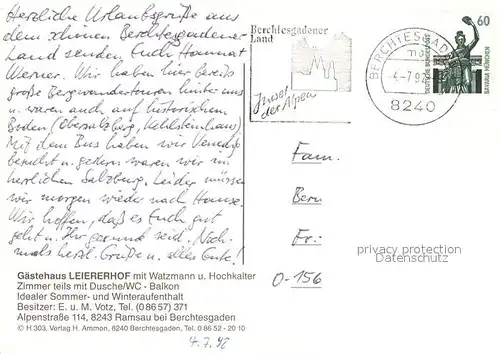 Herzliche Urlaubsgrüße aus
dem schönen Berchtesgadener
Land senden Euch Hanna t
Werner. Wir haben hier bereits
große Bergwanderungen hinter uns
u. waren auch auf historischem
Boden (Obersalzberg, Kehlsteinhaus)
Mit dem Bus haben wir Venedig
besucht u. gestern waren wir im
herrlichen Salzburg. Leider müssen
wir morgen wieder nach Hause.
Wir hoffen, daß es Euch gut
geht u. Ihr gesund seid. Noch-
mals herzl. Grüße u. alles Gute!
Gästehaus LEIERERHOF mit Watzmann u. Hochkalter
Zimmer teils mit Dusche/WC - Balkon
Idealer Sommer- und Winteraufenthalt
Besitzer: E. u. M. Votz, Tel. (0 86 57) 371
Alpenstraße 114, 8243 Ramsau bei Berchtesgaden
© H 303, Verlag H. Ammon, 8240 Berchtesgaden, Tel. 0 86 52 - 20 10
4.7.92
Berchtesgadener
Land
Insel
der Alpen
BERCHTESGADEN
-4.-7.92
8240
60
DEUTSCHE BUNDESPOST
BAVARIA MÜNCHEN
Fam.
Bern
Fr.:
O-156
privacy protection
Datenschutz